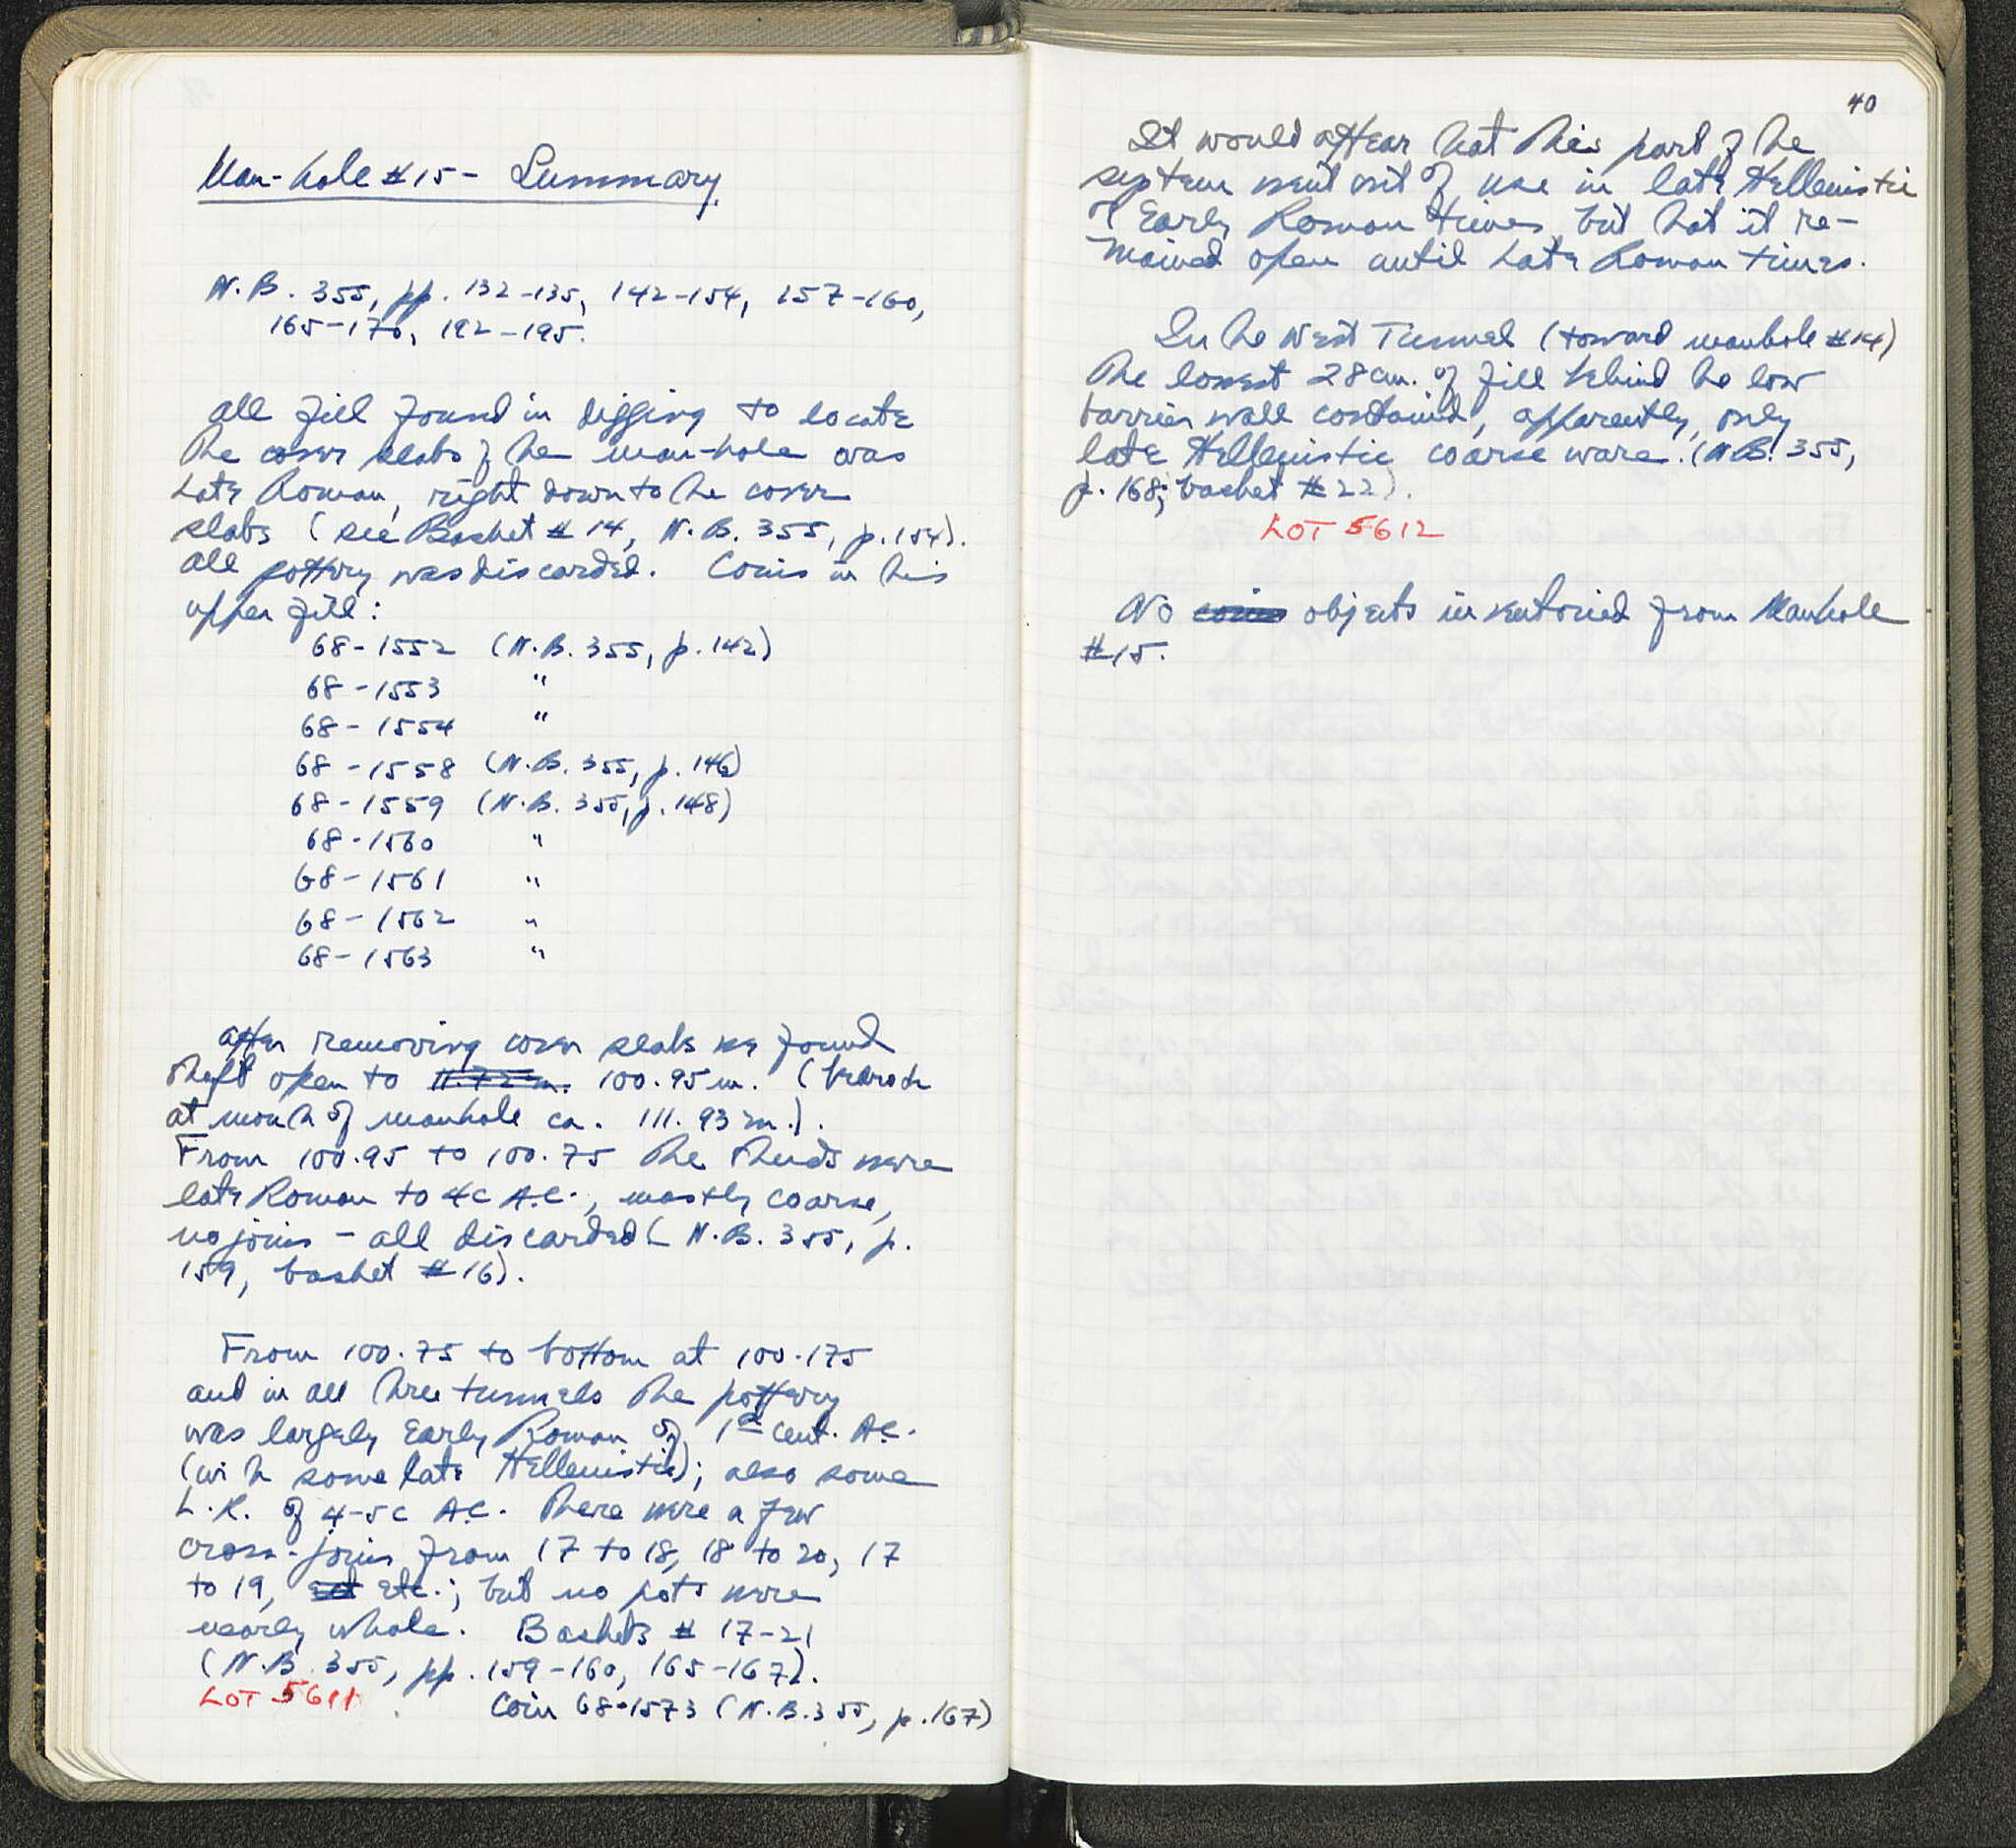 Man-hole #15 - Summary
N.B. 355, pp. 132-135, 142-154, 157-160,
165-170, 192-195.
All fill found in digging to locate
the cover slabs of the man-hole was
Late Roman, right down to the cover
slabs (see Basket #14, N.B. 355, p. 154).
All pottery was discarded. Coins in this
upper fill:
68-1552 (N.B. 355, p. 142)
68-1553 "
68-1554 "
68-1558 (N.B. 355, p. 146)
68-1559 (N.B. 355, p. 148)
68-1560 "
68-1561 "
68-1562 "
68-1563 "
After removing cover slabs we found
shaft open to 11.72 m. 100.95 m. (
at mouth of manhole ca. 111.93 m.).
From 100.95 to 100.75 the sherds were
late Roman to 4c A.C., mostly coarse,
no joins - all discarded (N.B. 355, p.
159, basket #16).
From 100.75 to bottom at 100.175
and in all three tunnels the pottery
was largely Early Roman of 1st cent. A.C.
(with some late Hellenistic); also some
L.R. of 4-5c A.C. There were a few
cross-joins from 17 to 18, 18 to 20, 17
to 19, ect etc.; but no pots were
nearly whole. Baskets # 17-21
(N.B. 355, pp. 159-160, 165-167).
LOT 5611 Coin 68-1573 (N.B. 355, p. 167)
40
It would appear that this part of the
system went out of use in late Hellenistic
or Early Roman times, but that it re-
mained open until Late Roman times.
In the West Tunnel (toward manhole #14)
the lowest 28 cm. of fill behind the low
barrier wall contained, apparently, only
late Hellenistic coarse ware. (N.B. 355,
p. 168; basket #22).
LOT 5612
No coins objects inventoried from Manhole
#15.